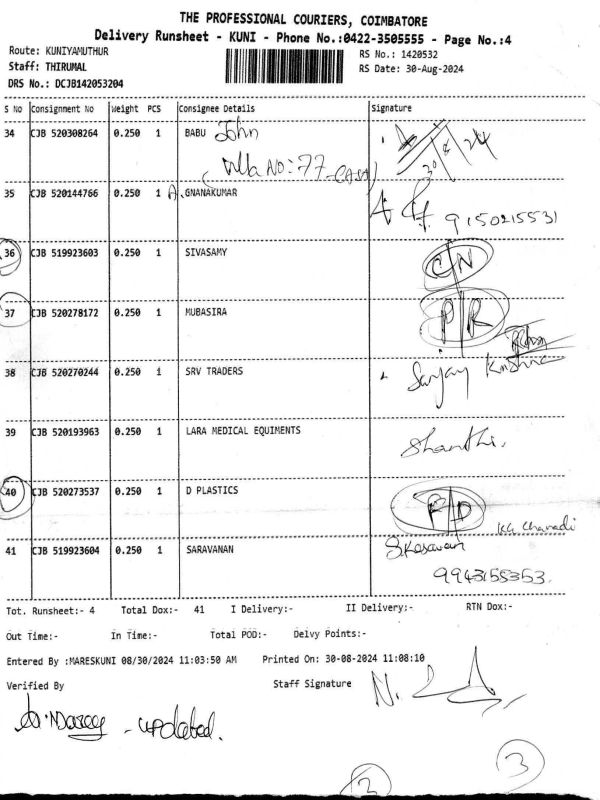 THE PROFESSIONAL COURIERS, COIMBATORE
Delivery Runsheet - KUNI - Phone No.:0422-3505555 - Page No.:4
Route: KUNIYAMUTHUR RS No.: 1420532
Staff: THIRUMAL RS Date: 30-Aug-2024
DRS No.: DCJB142053204
S No Consignment No Weight PCS Consignee Details Signature
34 CJB 520308264 0.250 1 BABU John
Villa No:77 30/8/24
35 CJB 520144766 0.250 1 A. GNANAKUMAR
9150215531
36 CJB 519923603 0.250 1 SIVASAMY CN
37 CJB 520278172 0.250 1 MUBASIRA PR
38 CJB 520270244 0.250 1 SRV TRADERS Sanjay Krishna
39 CJB 520193963 0.250 1 LARA MEDICAL EQUIMENTS
Shanthi.
40 CJB 520273537 0.250 1 D PLASTICS RD
41 CJB 519923604 0.250 1 SARAVANAN S.Kesavan
9943155353.
Tot. Runsheet:- 4 Total Dox:- 41 I Delivery:- II Delivery:- RTN Dox:-
Out Time:- In Time:- Total POD:- Delvy Points:-
Entered By :MARESKUNI 08/30/2024 11:03:50 AM Printed On: 30-08-2024 11:08:10
Verified By Staff Signature
- updated.
3
2